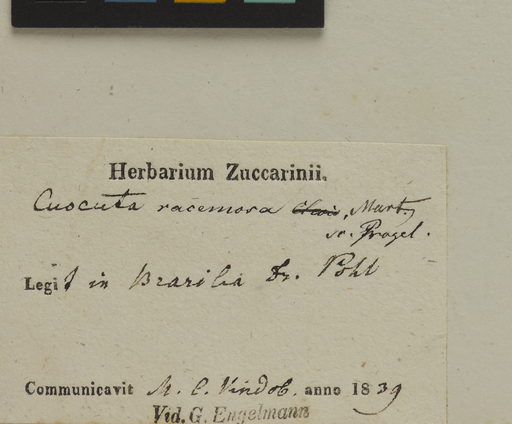 Herbarium Zuccarinii.
Cuscuta racemosa , Mart.
sc. Progel.
Legit in Brasilia Dr. Pohl
Communicavit M. C. Vindob. anno 1839
Vid. G. Engelmann